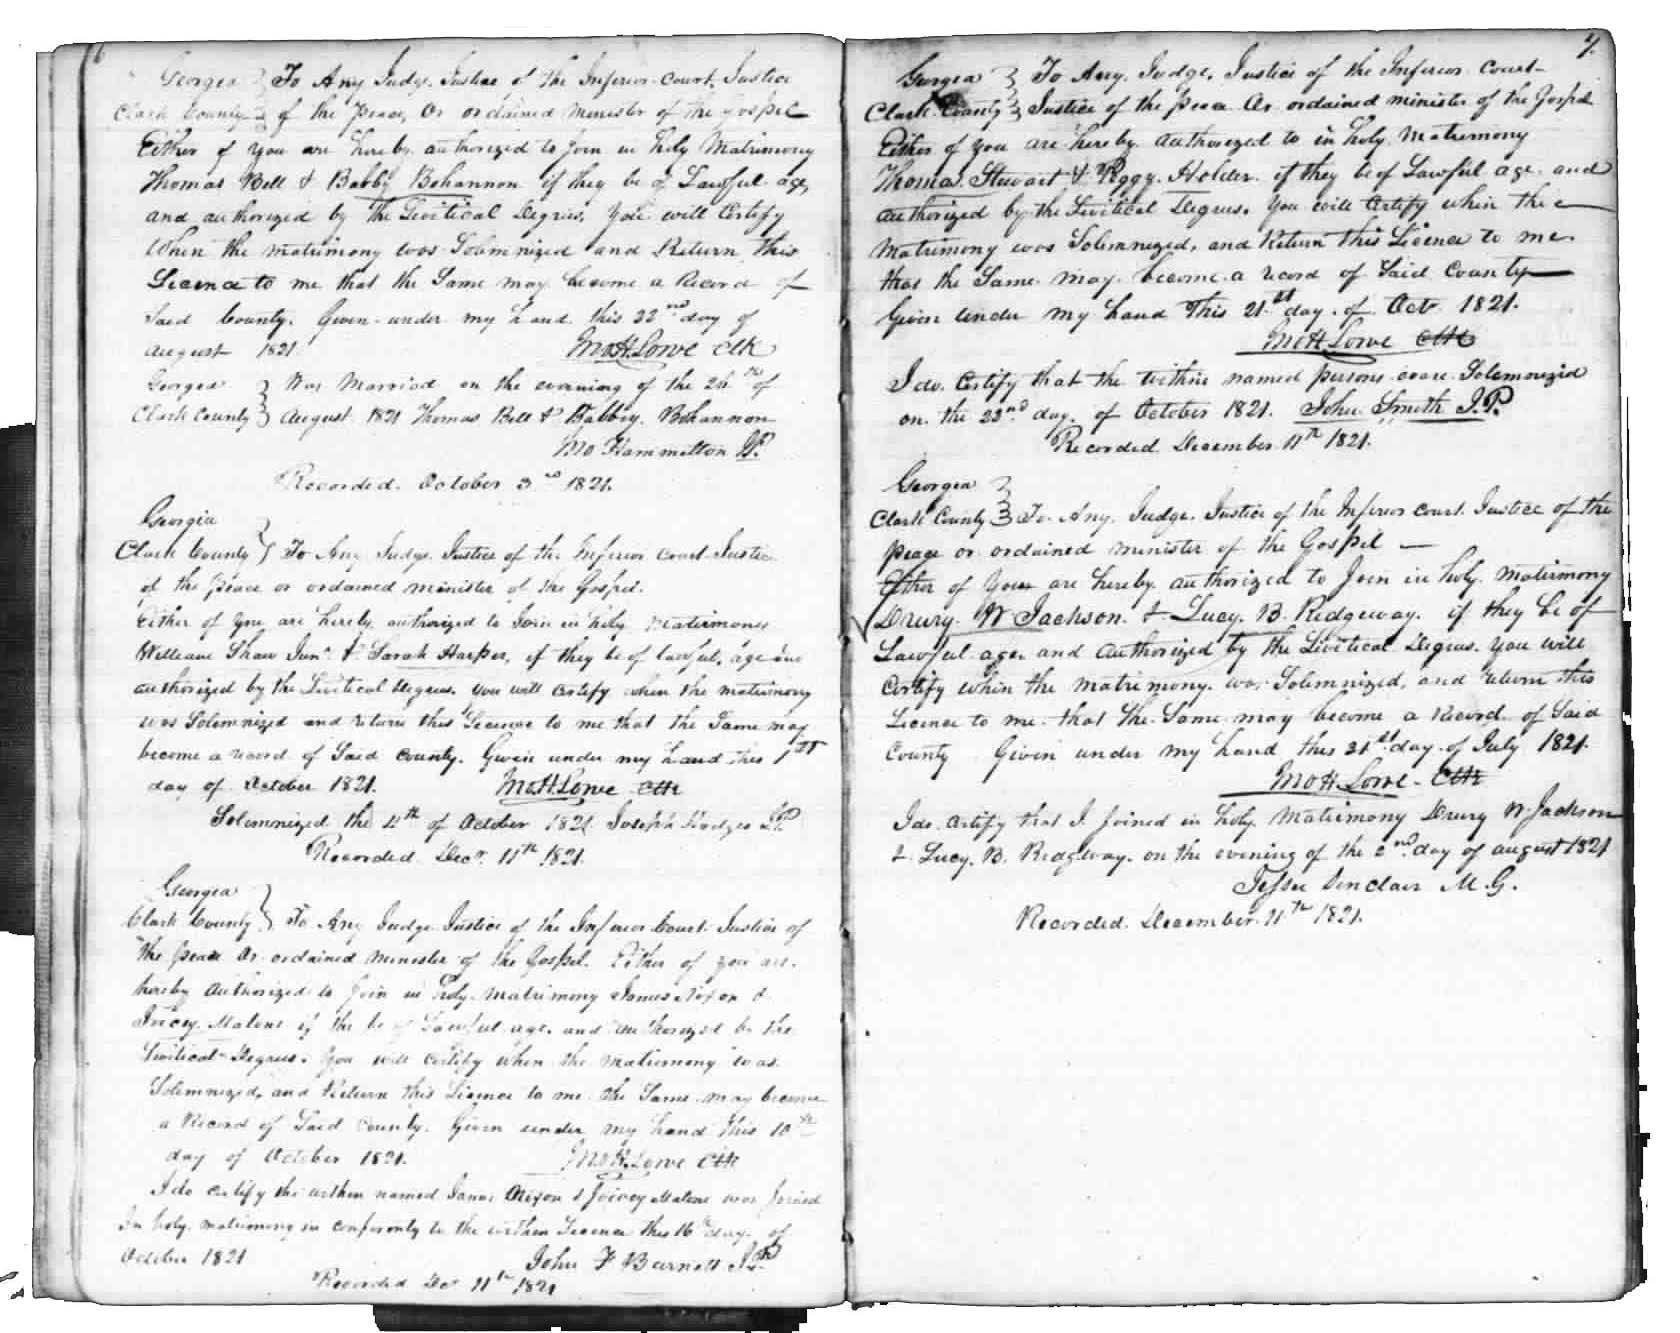 6
Georgia } To Any Judge, Justice of the Inferior Court, Justice
Clark County } of the Peace, Or ordained minister of the Gospel
Either of you are hereby authorized to Join in holy Matrimony
Thomas Bell & Babby Bohannon if they be of Lawful age,
and authorized by the Livitical Degrees, You will Certify
When the matrimony was Solemnized and Return this
Licence to me that the Same may become a Record of
Said County. Given under my hand this 22nd day of
August 1821 Jno H. Lowe Clk
Georgia } Was Married on the evening of the 26th of
Clark County } August 1821 Thomas Bell & Babbby Bohannon
Jno Hammelton JP.
Recorded October 3rd 1821.
Georgia }
Clark County } To Any Judge Justice of the Inferior Court Justice
of the Peace or ordained minister of the Gospel.
Either of you are hereby authorized to Join in holy matrimony
William Shaw Junr. & Sarah Harper, if they be of lawful, age and
authorized by the Livitical Degrees. you will Certify when the matrimony
was Solemnized and return this Licence to me that the Same may
become a record of Said County. Given under my hand this 1st
day of October 1821. Jno H. Lowe Clk
Solemnized the 11th of October 1821 Joseph Hodges J.P.
Recorded Decr. 11th 1821.
Georgia }
Clark County } To Any Judge Justice of the Inferior Court Justice of
the peace Or ordained minister of the Gospel. Either of you are
hereby authorized to Join in holy matrimony James Nixon &
Joicey Malone if the be of Lawful age, and authorized be the
Livitical Degrees. You will Certify when the matrimony was
Solemnized, and Return this Licence to me the Same may become
a Record of Said County. Given under my hand this 10th
day of October 1821. Jno H. Lowe Clk
I do certify the within named James Nixon & Joicey Malone was Joined
In holy matrimony in conformty to the within Licence this 16th day of
October 1821 John F Barnett J.P.
Recorded Dec 11th 1821
7.
Georgia } To Any Judge, Justice of the Inferior Court
Clark County } Justice of the peace Or ordained minister of the Gospel
Either of you are hereby authorized to in holy Matrimony
Thomas Stewart & Peggy Holder if they be of Lawful age and
authorized by the Livitical Degrees. You will Certify when the
Matrimony was Solemnized, and Return this Licence to me
that the Same may become a record of Said County
Given under my hand This 21st day of Oct 1821.
Jno H Lowe Clk
I do Certify that the within named persons ware Solemnized
on the 23nd day of October 1821. John Smith J.P.
Recorded December 11th 1821.
Georgia }
Clark County } To Any Judge, Justice of the Inferior Court Justice of the
peace or ordained minister of the Gospel
Either of you are hereby authorized to Join in holy matrimony
Drury W Jackson & Lucy B. Ridgeway if they be of
Lawful age and authorized by the Livitical Degrees. You will
Certify when the matrimony was Solemnized, and return this
Licence to me that the Same may become a Record of Said
County Given under my hand this 31st day of July 1821.
Jno H Lowe Clk
I do Certify that I Joined in holy Matrimony Drury W Jackson
& Lucy B. Ridgway on the evening of the 2nd day of august 1821
Jesse Sinclair M.G.
Recorded December 11th 1821.